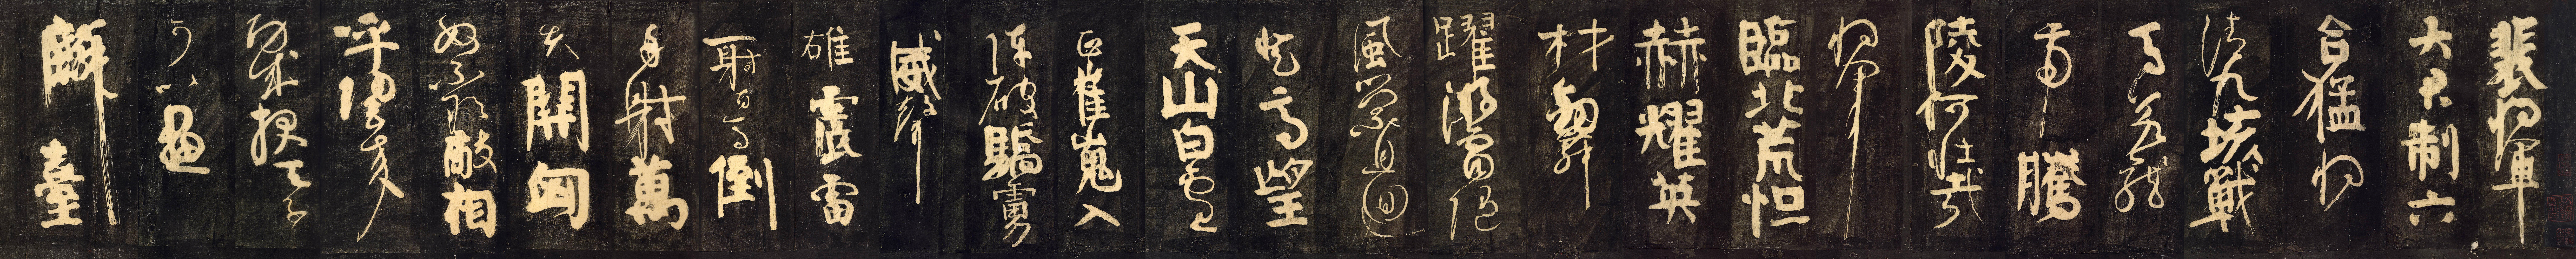 裴將軍
大君制六
合猛將
清九垓戰
馬若龍
虎騰
陵何壯哉
將軍
臨北荒烜
赫耀英
材劍舞
躍游電隨
風縈且迴
登高望
天山白雲
正崔嵬入
陣破驕虜
威聲
雄震雷
一射百馬倒
再射萬
夫開匈
奴不敢敵相
呼歸去來
功成報天子
可以畫
麟臺